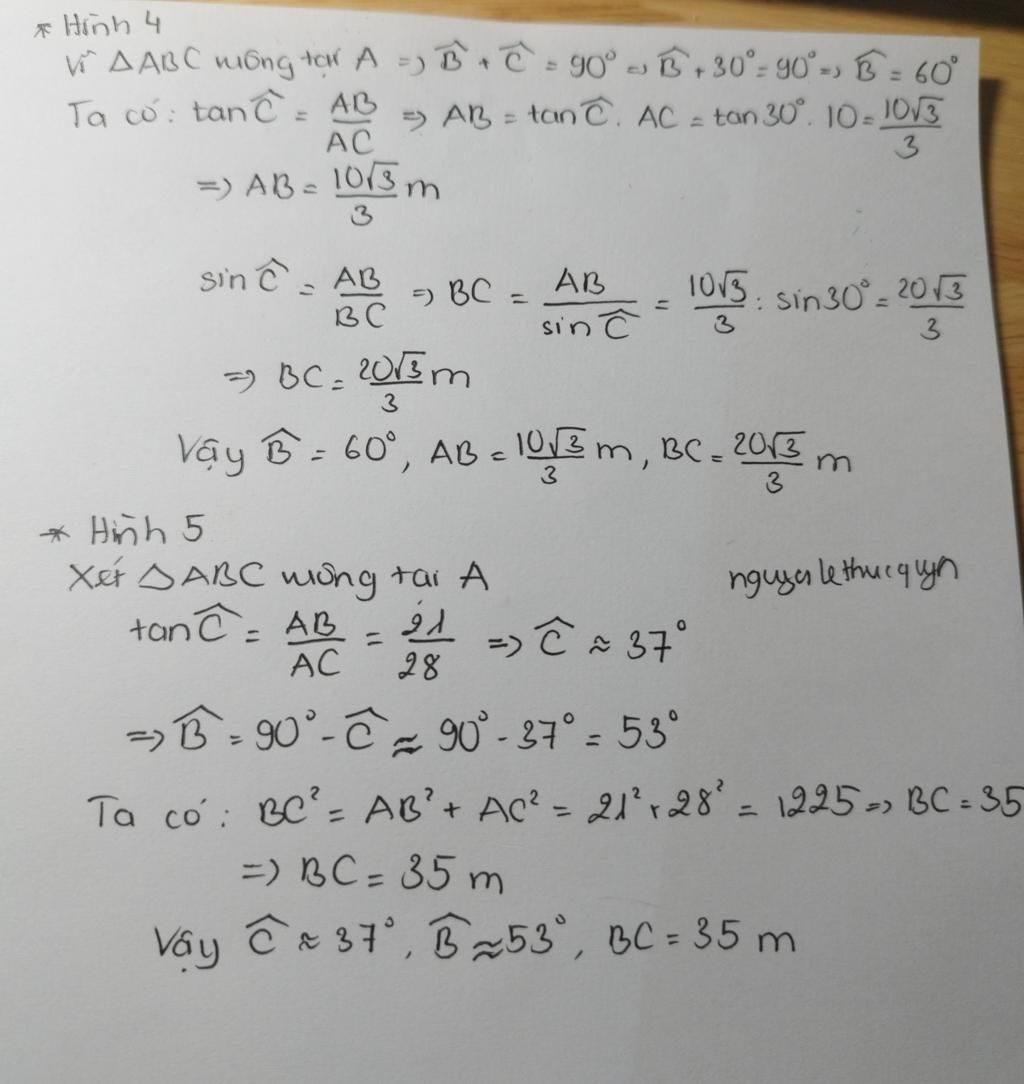 * Hình 4
Vì △ABC vuông tại A => B̂ + Ĉ = 90° => B̂ + 30° = 90° => B̂ = 60°
Ta có: tan Ĉ = AB/AC => AB = tan Ĉ. AC = tan 30°. 10 = 10√3/3
=> AB = 10√3/3 m
sin Ĉ = AB/BC => BC = AB/sin Ĉ = 10√3/3 : sin 30° = 20√3/3
=> BC = 20√3/3 m
Vậy B̂ = 60°, AB = 10√3/3 m, BC = 20√3/3 m
* Hình 5
Xét △ABC vuông tại A
nguyenlethucquyn
tan Ĉ = AB/AC = 21/28 => Ĉ ≈ 37°
=> B̂ = 90° - Ĉ ≈ 90° - 37° = 53°
Ta có: BC² = AB² + AC² = 21² + 28² = 1225 => BC = 35
=> BC = 35 m
Vậy Ĉ ≈ 37°, B̂ ≈ 53°, BC = 35 m